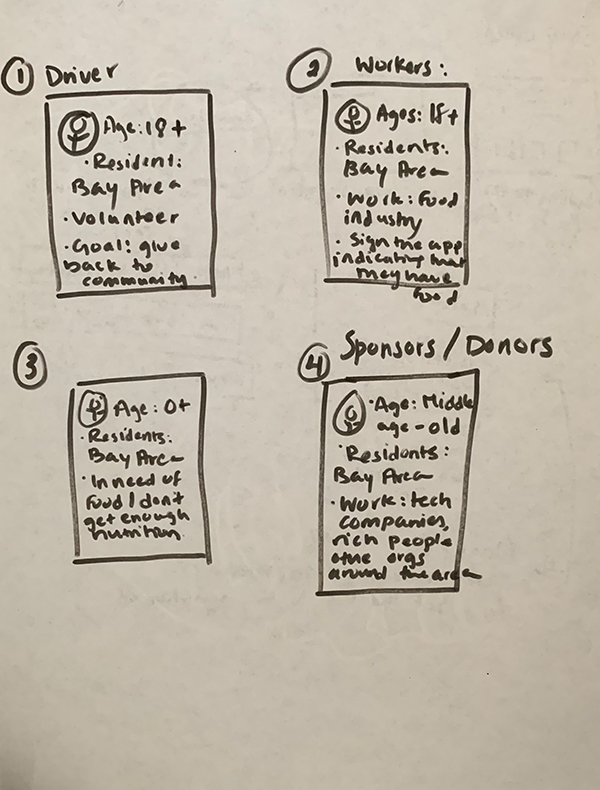 1 Driver
Age: 18+
· Resident:
Bay Area
· Volunteer
· Goal: give
back to
community.
2 Workers:
Ages: 18+
· Residents:
Bay Area
· Work: Food
industry
· Sign the app
indicating that
they have
food
3
Age: 0+
· Residents:
Bay Area
· In need of
food / don't
get enough
nutrition.
4 Sponsors / Donors
· Age: Middle
age - old
· Residents:
Bay Area
· Work: tech
companies,
rich people
othe orgs
around the area